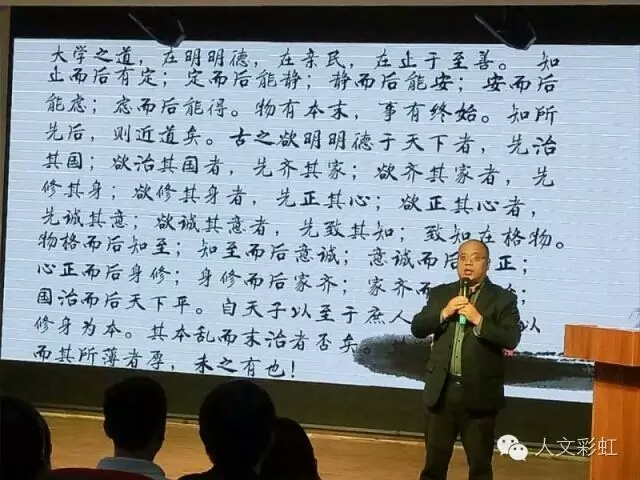 大学之道，在明明德，在亲民，在止于至善。知
止而后有定；定而后能静；静而后能安；安而后
能虑；虑而后能得。物有本末，事有终始。知所
先后，则近道矣。古之欲明明德于天下者，先治
其国；欲治其国者，先齐其家；欲齐其家者，先
修其身；欲修其身者，先正其心；欲正其心者，
先诚其意；欲诚其意者，先致其知；致知在格物。
物格而后知至；知至而后意诚；意诚而后正；
心正而后身修；身修而后家齐；家齐而；
国治而后天下平。自天子以至于庶人以
修身为本。其本乱而末治者否矣。
而其所薄者厚，未之有也！
人文彩虹